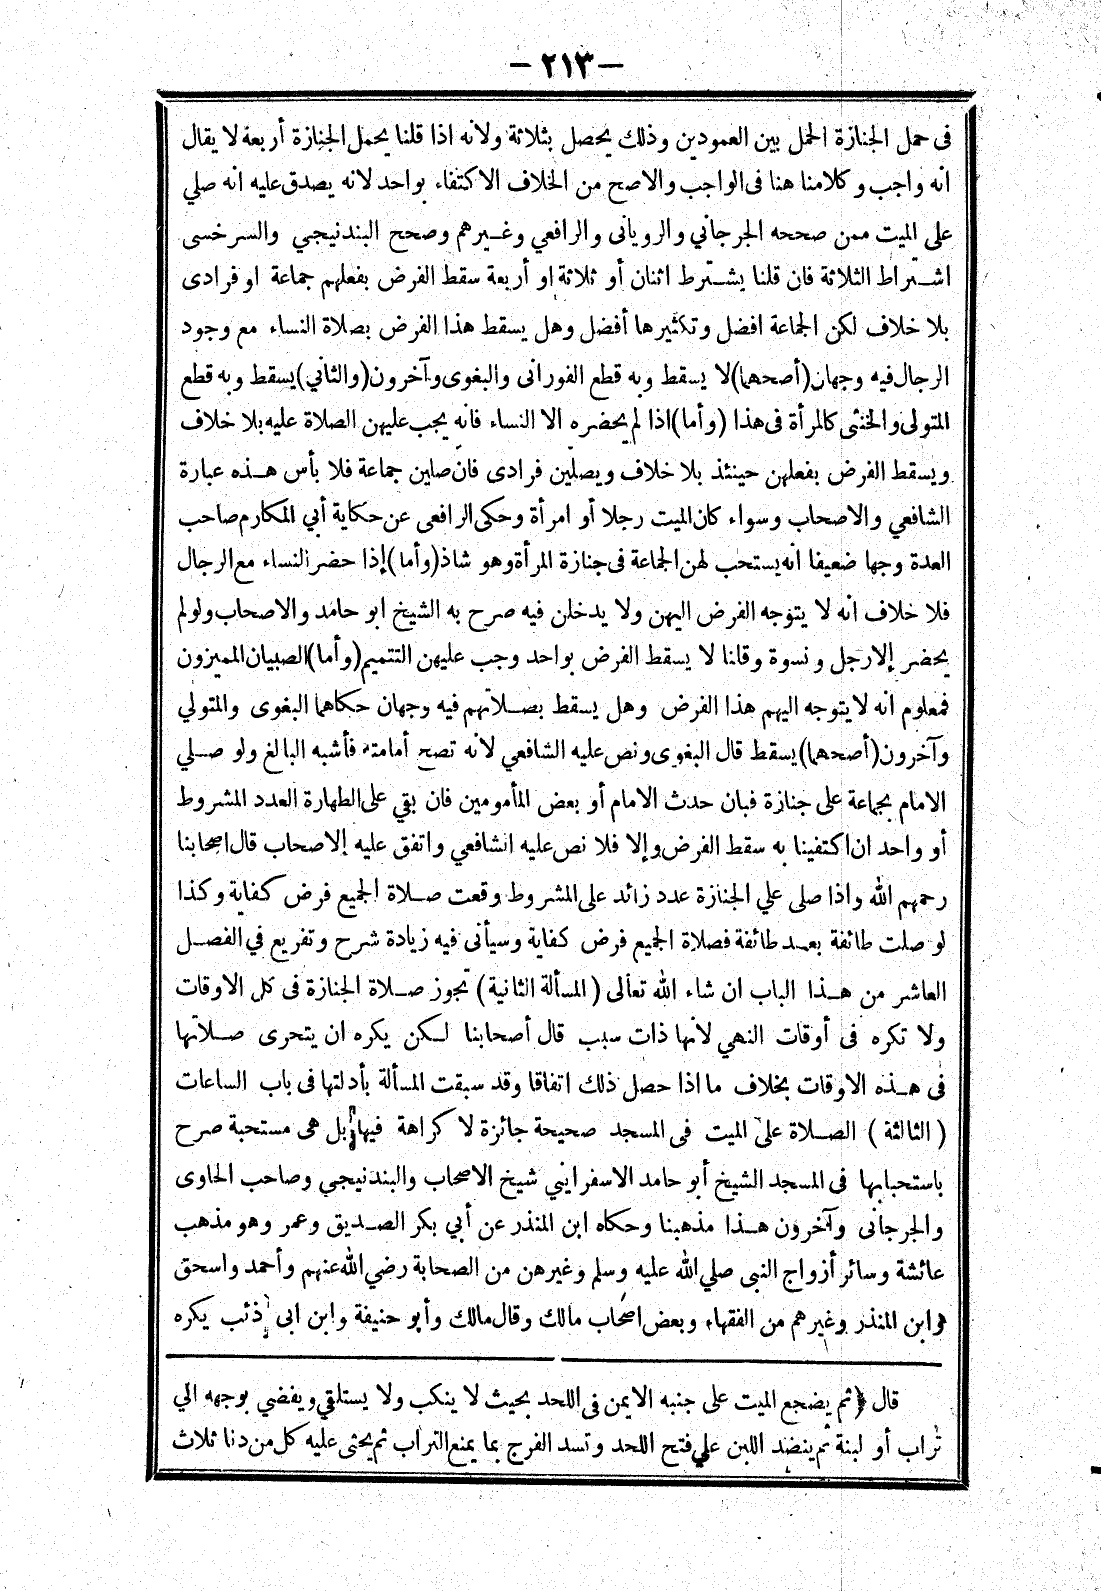 — ٢١٣ —
فى حمل الجنازة الحمل بين العمودين وذلك يحصل بثلاثة ولانه اذا قلنا يحمل الجنازة أربعة لا يقال
انه واجب وكلامنا هنا فى الواجب والاصح من الخلاف الاكتفاء بواحد لانه يصدق عليه انه صلي
على الميت ممن صححه الجرجاني والرويانى والرافعي وغيرهم وصحح البندنيجي والسرخسى
اشتراط الثلاثة فان قلنا يشترط اثنان أو ثلاثة او أربعة سقط الفرض بفعلهم جماعة او فرادى
بلا خلاف لكن الجماعة افضل وتكثيرها أفضل وهل يسقط هذا الفرض بصلاة النساء مع وجود
الرجال فيه وجهان (أصحهما) لا يسقط وبه قطع الفورانى والبغوى وآخرون (والثاني) يسقط وبه قطع
المتولى والخنثى كالمرأة فى هذا (وأما) اذا لم يحضره الا النساء فانه يجب عليهن الصلاة عليه بلا خلاف
ويسقط الفرض بفعلهن حينئذ بلا خلاف ويصلين فرادى فان صلين جماعة فلا بأس هذه عبارة
الشافعي والاصحاب وسواء كان الميت رجلا أو امرأة وحكى الرافعى عن حكاية أبي المكارم صاحب
العدة وجها ضعيفا انه يستحب لهن الجماعة فى جنازة المرأة وهو شاذ (وأما) إذا حضر النساء مع الرجال
فلا خلاف انه لا يتوجه الفرض اليهن ولا يدخلن فيه صرح به الشيخ ابو حامد والاصحاب ولو لم
يحضر إلا رجل ونسوة وقلنا لا يسقط الفرض بواحد وجب عليهن التتميم (وأما) الصبيان المميزون
فمعلوم انه لا يتوجه اليهم هذا الفرض وهل يسقط بصلاتهم فيه وجهان حكاهما البغوى والمتولي
وآخرون (أصحهما) يسقط قال البغوى ونص عليه الشافعي لانه تصح أمامته فأشبه البالغ ولو صلي
الامام بجماعة على جنازة فبان حدث الامام أو بعض المأمومين فان بقي على الطهارة العدد المشروط
أو واحد ان اكتفينا به سقط الفرض وإلا فلا نص عليه الشافعي واتفق عليه الاصحاب قال اصحابنا
رحمهم الله واذا صلى علي الجنازة عدد زائد على المشروط وقعت صلاة الجميع فرض كفاية وكذا
لو صلت طائفة بعد طائفة فصلاة الجميع فرض كفاية وسيأتى فيه زيادة شرح وتفريع في الفصل
العاشر من هذا الباب ان شاء الله تعالى (المسألة الثانية) تجوز صلاة الجنازة فى كل الاوقات
ولا تكره فى أوقات النهي لانها ذات سبب قال أصحابنا لكن يكره ان يتحرى صلاتها
فى هذه الاوقات بخلاف ما اذا حصل ذلك اتفاقا وقد سبقت المسألة بأدلتها فى باب الساعات
(الثالثة) الصلاة على الميت فى المسجد صحيحة جائزة لا كراهة فيها بل هى مستحبة صرح
باستحبابها فى المسجد الشيخ أبو حامد الاسفرايني شيخ الاصحاب والبندنيجي وصاحب الحاوى
والجرجانى وآخرون هذا مذهبنا وحكاه ابن المنذر عن أبي بكر الصديق وعمر وهو مذهب
عائشة وسائر أزواج النبى صلي الله عليه وسلم وغيرهن من الصحابة رضي الله عنهم وأحمد واسحق
وابن المنذر وغيرهم من الفقهاء وبعض اصحاب مالك وقال مالك وأبو حنيفة وابن ابى ذئب يكره
قال ﴿ثم يضجع الميت على جنبه الايمن فى اللحد بحيث لا ينكب ولا يستلقي ويفضي بوجهه الي
تراب أو لبنة ثم ينضد اللبن علي فتح اللحد وتسد الفرج بما يمنع التراب ثم يحثى عليه كل من دنا ثلاث